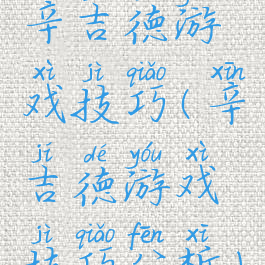 辛吉德游
xì jì qiǎo xīn
戏技巧(辛
jí dé yóu xì
吉德游戏
jì qiǎo fēn xī
技巧分析)